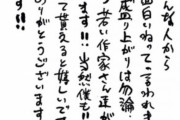 んな人から
面白いねって言われま
盛り上がりは勿論
若い作家さん達が
ます!!当然僕も!!
て貰えると嬉しいで
りがとうございます
!!